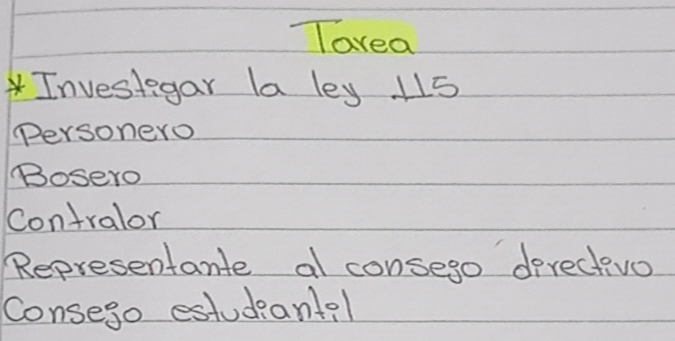 Tarea
* Investigar la ley 115
Personero
Bosero
Contralor
Representante al consejo directivo
Consejo estudiantil